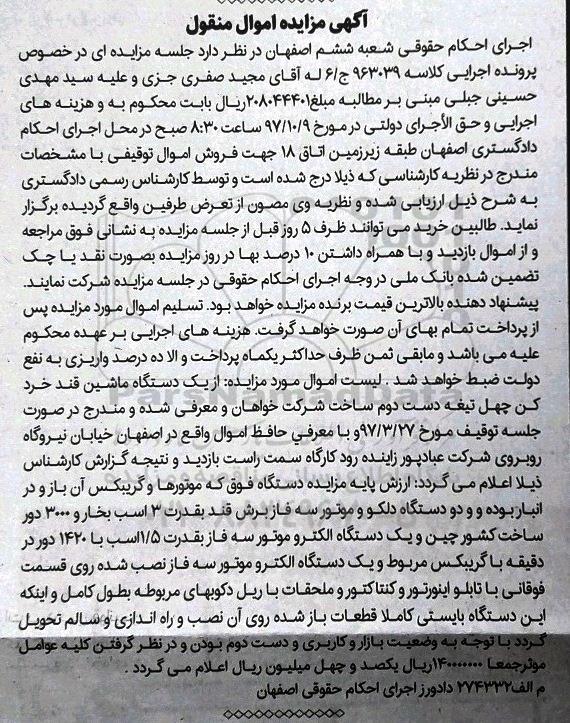 آگهی مزایده اموال منقول
اجرای احکام حقوقی شعبه ششم اصفهان در نظر دارد جلسه مزایده ای در خصوص
پرونده اجرایی کلاسه ۹۶۳۰۳۹ ج/۶ له آقای مجید صفری جزی و علیه سید مهدی
حسینی جبلی مبنی بر مطالبه مبلغ۲۰۸۰۴۴۴۰۱ریال بابت محکوم به و هزینه های
اجرایی و حق الأجرای دولتی در مورخ ۹۷/۱۰/۹ ساعت ۸:۳۰ صبح در محل اجرای احکام
دادگستری اصفهان طبقه زیرزمین اتاق ۱۸ جهت فروش اموال توقیفی با مشخصات
مندرج در نظریه کارشناسی که ذیلا درج شده است و توسط کارشناس رسمی دادگستری
به شرح ذیل ارزیابی شده و نظریه وی مصون از تعرض طرفین واقع گردیده برگزار
نماید. طالبین خرید می توانند ظرف ۵ روز قبل از جلسه مزایده به نشانی فوق مراجعه
و از اموال بازدید و با همراه داشتن ۱۰ درصد بها در روز مزایده بصورت نقد یا چک
تضمین شده بانک ملی در وجه اجرای احکام حقوقی در جلسه مزایده شرکت نمایند.
پیشنهاد دهنده بالاترین قیمت برنده مزایده خواهد بود. تسلیم اموال مورد مزایده پس
از پرداخت تمام بهای آن صورت خواهد گرفت. هزینه های اجرایی بر عهده محکوم
علیه می باشد و مابقی ثمن ظرف حداکثر یکماه پرداخت و الا ده درصد واریزی به نفع
دولت ضبط خواهد شد . لیست اموال مورد مزایده: از یک دستگاه ماشین قند خرد
کن چهل تیغه دست دوم ساخت شرکت خواهان و معرفی شده و مندرج در صورت
جلسه توقیف مورخ ۹۷/۳/۲۷و با معرفی حافظ اموال واقع در اصفهان خیابان نیروگاه
روبروی شرکت عبادپور زاینده رود کارگاه سمت راست بازدید و نتیجه گزارش کارشناس
ذیلا اعلام می گردد: ارزش پایه مزایده دستگاه فوق که موتورها و گریبکس آن باز و در
انبار بوده و و دو دستگاه دلکو و موتور سه فاز برش قند بقدرت ۳ اسب بخار و ۳۰۰۰ دور
ساخت کشور چین و یک دستگاه الکترو موتور سه فاز بقدرت ۱/۵اسب با ۱۴۲۰ دور در
دقیقه با گریبکس مربوط و یک دستگاه الکترو موتور سه فاز نصب شده روی قسمت
فوقانی با تابلو اینورتور و کنتاکتور و ملحقات با ریل دکوبهای مربوطه بطول کامل و اینکه
این دستگاه بایستی کاملا قطعات باز شده روی آن نصب و راه اندازی و سالم تحویل
گردد با توجه به وضعیت بازار و کاربری و دست دوم بودن و در نظر گرفتن کلیه عوامل
موثرجمعا ۱۴۰۰۰۰۰۰۰ریال یکصد و چهل میلیون ریال اعلام می گردد .
م الف۲۷۴۳۳۲ دادورز اجرای احکام حقوقی اصفهان
ParsNamadData